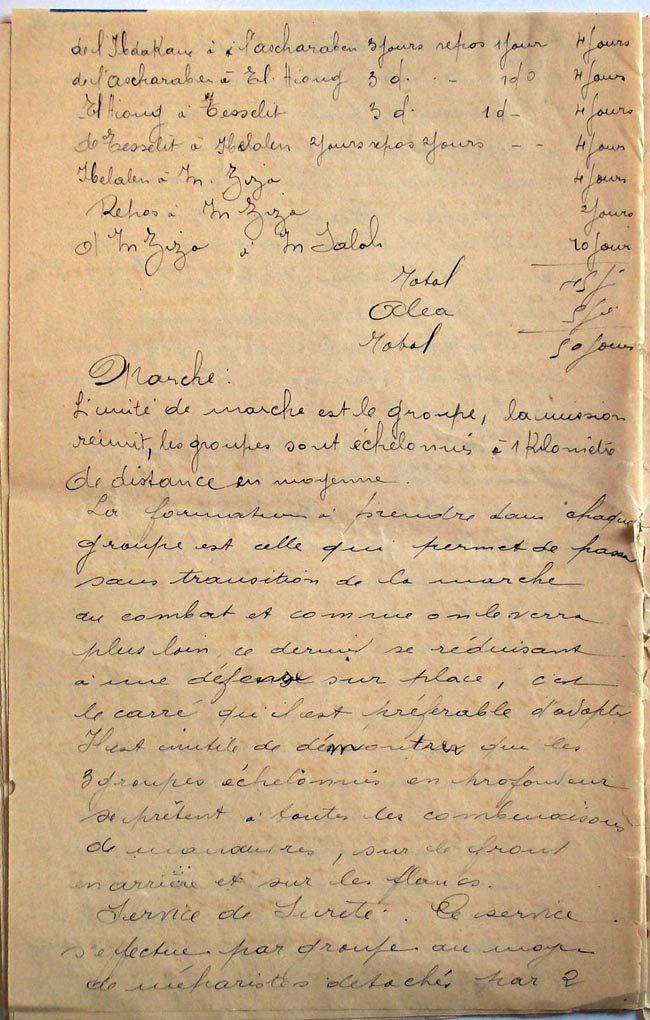 de l' à l'ascharaben 3 jours repos 1 jour 4 jours
de l'ascharaben à El Hiong 3 d. - 1 d 4 jours
El Hiong à Tesselit 3 d. 1 d - 4 jours
de Tesselit à Ibelalen 2 jours repos 2 jours - - 4 jours
Ibelalen à In Ziza 4 jours
Repos à In Ziza 2 jours
d'In Ziza à In Salah 10 jours
Total 45 j
Alea 5 j
Total 50 jours
Marche :
L'unité de marche est le groupe, la mission
réunit, les groupes sont échelonnés à 1 Kilomètre
de distance en moyenne.
La formation à prendre dans chaque
groupe est celle qui permet de passer
sans transition de la marche
au combat et comme on le verra
plus loin, ce dernier se réduisant
à une défense sur place, c'est
le carré qu'il est préférable d'adopter
Il est inutile de démontrer que les
3 groupes échelonnés en profondeur
se prêtent à toutes les combinaisons
de manœuvres, sur le front
en arrière et sur les flancs.
Service de Sureté. Ce service
s'effectue par groupe au moyen
de méharistes détachés par 2